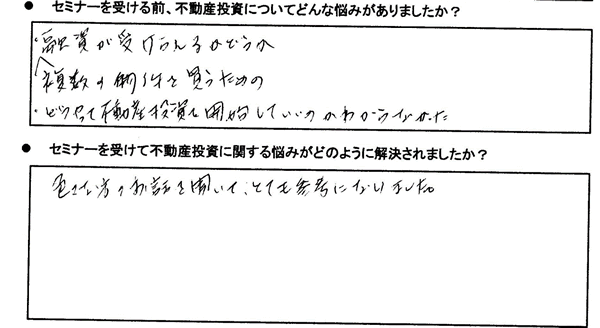 ● セミナーを受ける前、不動産投資についてどんな悩みがありましたか？
・融資が受けられるかどうか
複数の物件を買うための
・どうやって不動産投資を開始していいのかわからなかった
● セミナーを受けて不動産投資に関する悩みがどのように解決されましたか？
色々な方のお話を聞いて、とても参考になりました。